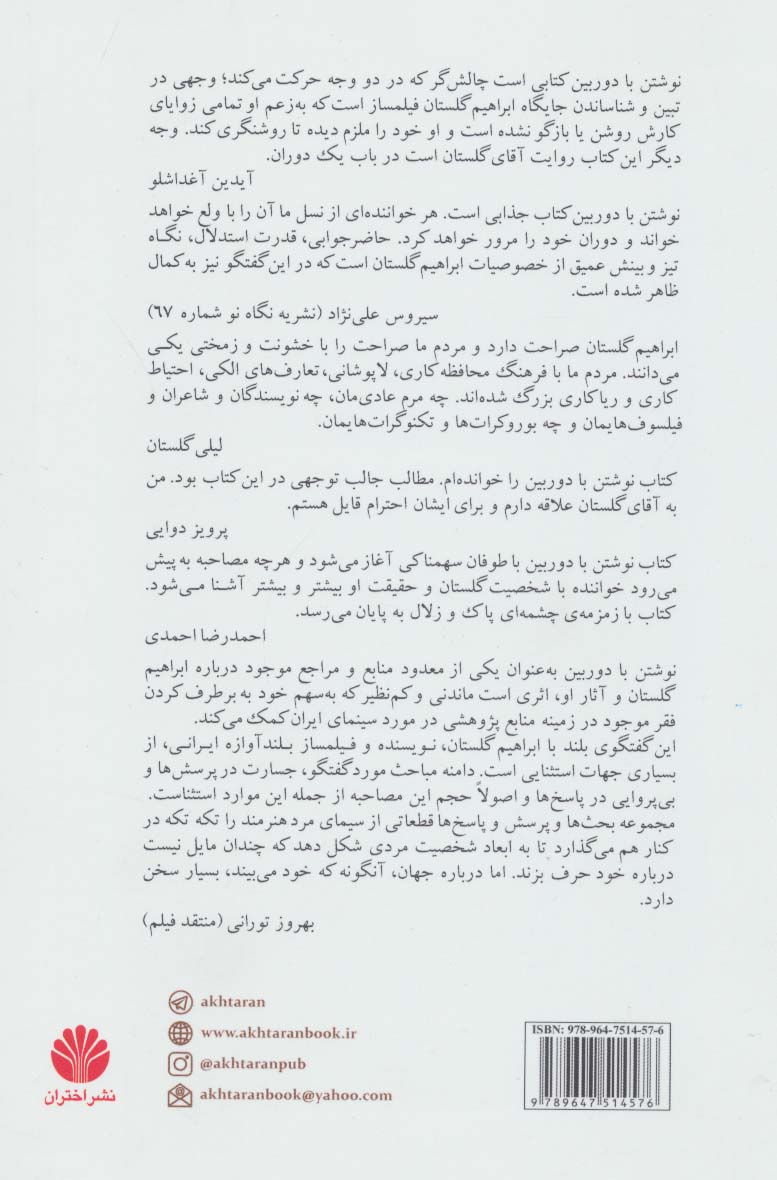 نوشتن با دوربین کتابی است چالش‌گر که در دو وجه حرکت می‌کند؛ وجهی در
تبین و شناساندن جایگاه ابراهیم گلستان فیلمساز است که به‌زعم او تمامی زوایای
کارش روشن یا بازگو نشده است و او خود را ملزم دیده تا روشنگری کند. وجه
دیگر این کتاب روایت آقای گلستان است در باب یک دوران.
آیدین آغداشلو
نوشتن با دوربین کتاب جذابی است. هر خواننده‌ای از نسل ما آن را با ولع خواهد
خواند و دوران خود را مرور خواهد کرد. حاضرجوابی، قدرت استدلال، نگاه
تیز و بینش عمیق از خصوصیات ابراهیم گلستان است که در این گفتگو نیز به کمال
ظاهر شده است.
سیروس علی‌نژاد (نشریه نگاه نو شماره ۶۷)
ابراهیم گلستان صراحت دارد و مردم ما صراحت را با خشونت و زمختی یکی
می‌دانند. مردم ما با فرهنگ محافظه‌کاری، لاپوشانی، تعارف‌های الکی، احتیاط
کاری و ریاکاری بزرگ شده‌اند. چه مرم عادی‌مان، چه نویسندگان و شاعران و
فیلسوف‌هایمان و چه بوروکرات‌ها و تکنوگرات‌هایمان.
لیلی گلستان
کتاب نوشتن با دوربین را خوانده‌ام. مطالب جالب توجهی در این کتاب بود. من
به آقای گلستان علاقه دارم و برای ایشان احترام قایل هستم.
پرویز دوایی
کتاب نوشتن با دوربین با طوفان سهمناکی آغاز می‌شود و هرچه مصاحبه به پیش
می‌رود خواننده با شخصیت گلستان و حقیقت او بیشتر و بیشتر آشنا می‌شود.
کتاب با زمزمه‌ی چشمه‌ای پاک و زلال به پایان می‌رسد.
احمدرضا احمدی
نوشتن با دوربین به‌عنوان یکی از معدود منابع و مراجع موجود درباره ابراهیم
گلستان و آثار او، اثری است ماندنی و کم‌نظیر که به‌سهم خود به برطرف کردن
فقر موجود در زمینه منابع پژوهشی در مورد سینمای ایران کمک می‌کند.
این گفتگوی بلند با ابراهیم گلستان، نویسنده و فیلمساز بلندآوازه ایرانی، از
بسیاری جهات استثنایی است. دامنه مباحث مورد گفتگو، جسارت در پرسش‌ها و
بی‌پروایی در پاسخ‌ها و اصولاً حجم این مصاحبه از جمله این موارد استثناست.
مجموعه بحث‌ها و پرسش و پاسخ‌ها قطعاتی از سیمای مرد هنرمند را تکه تکه در
کنار هم می‌گذارد تا به ابعاد شخصیت مردی شکل دهد که چندان مایل نیست
درباره خود حرف بزند. اما درباره جهان، آنگونه که خود می‌بیند، بسیار سخن
دارد.
بهروز تورانی (منتقد فیلم)
akhtaran
www.akhtaranbook.ir
@akhtaranpub
akhtaranbook@yahoo.com
نشر اختران
ISBN: 978-964-7514-57-6
9 789647 514576